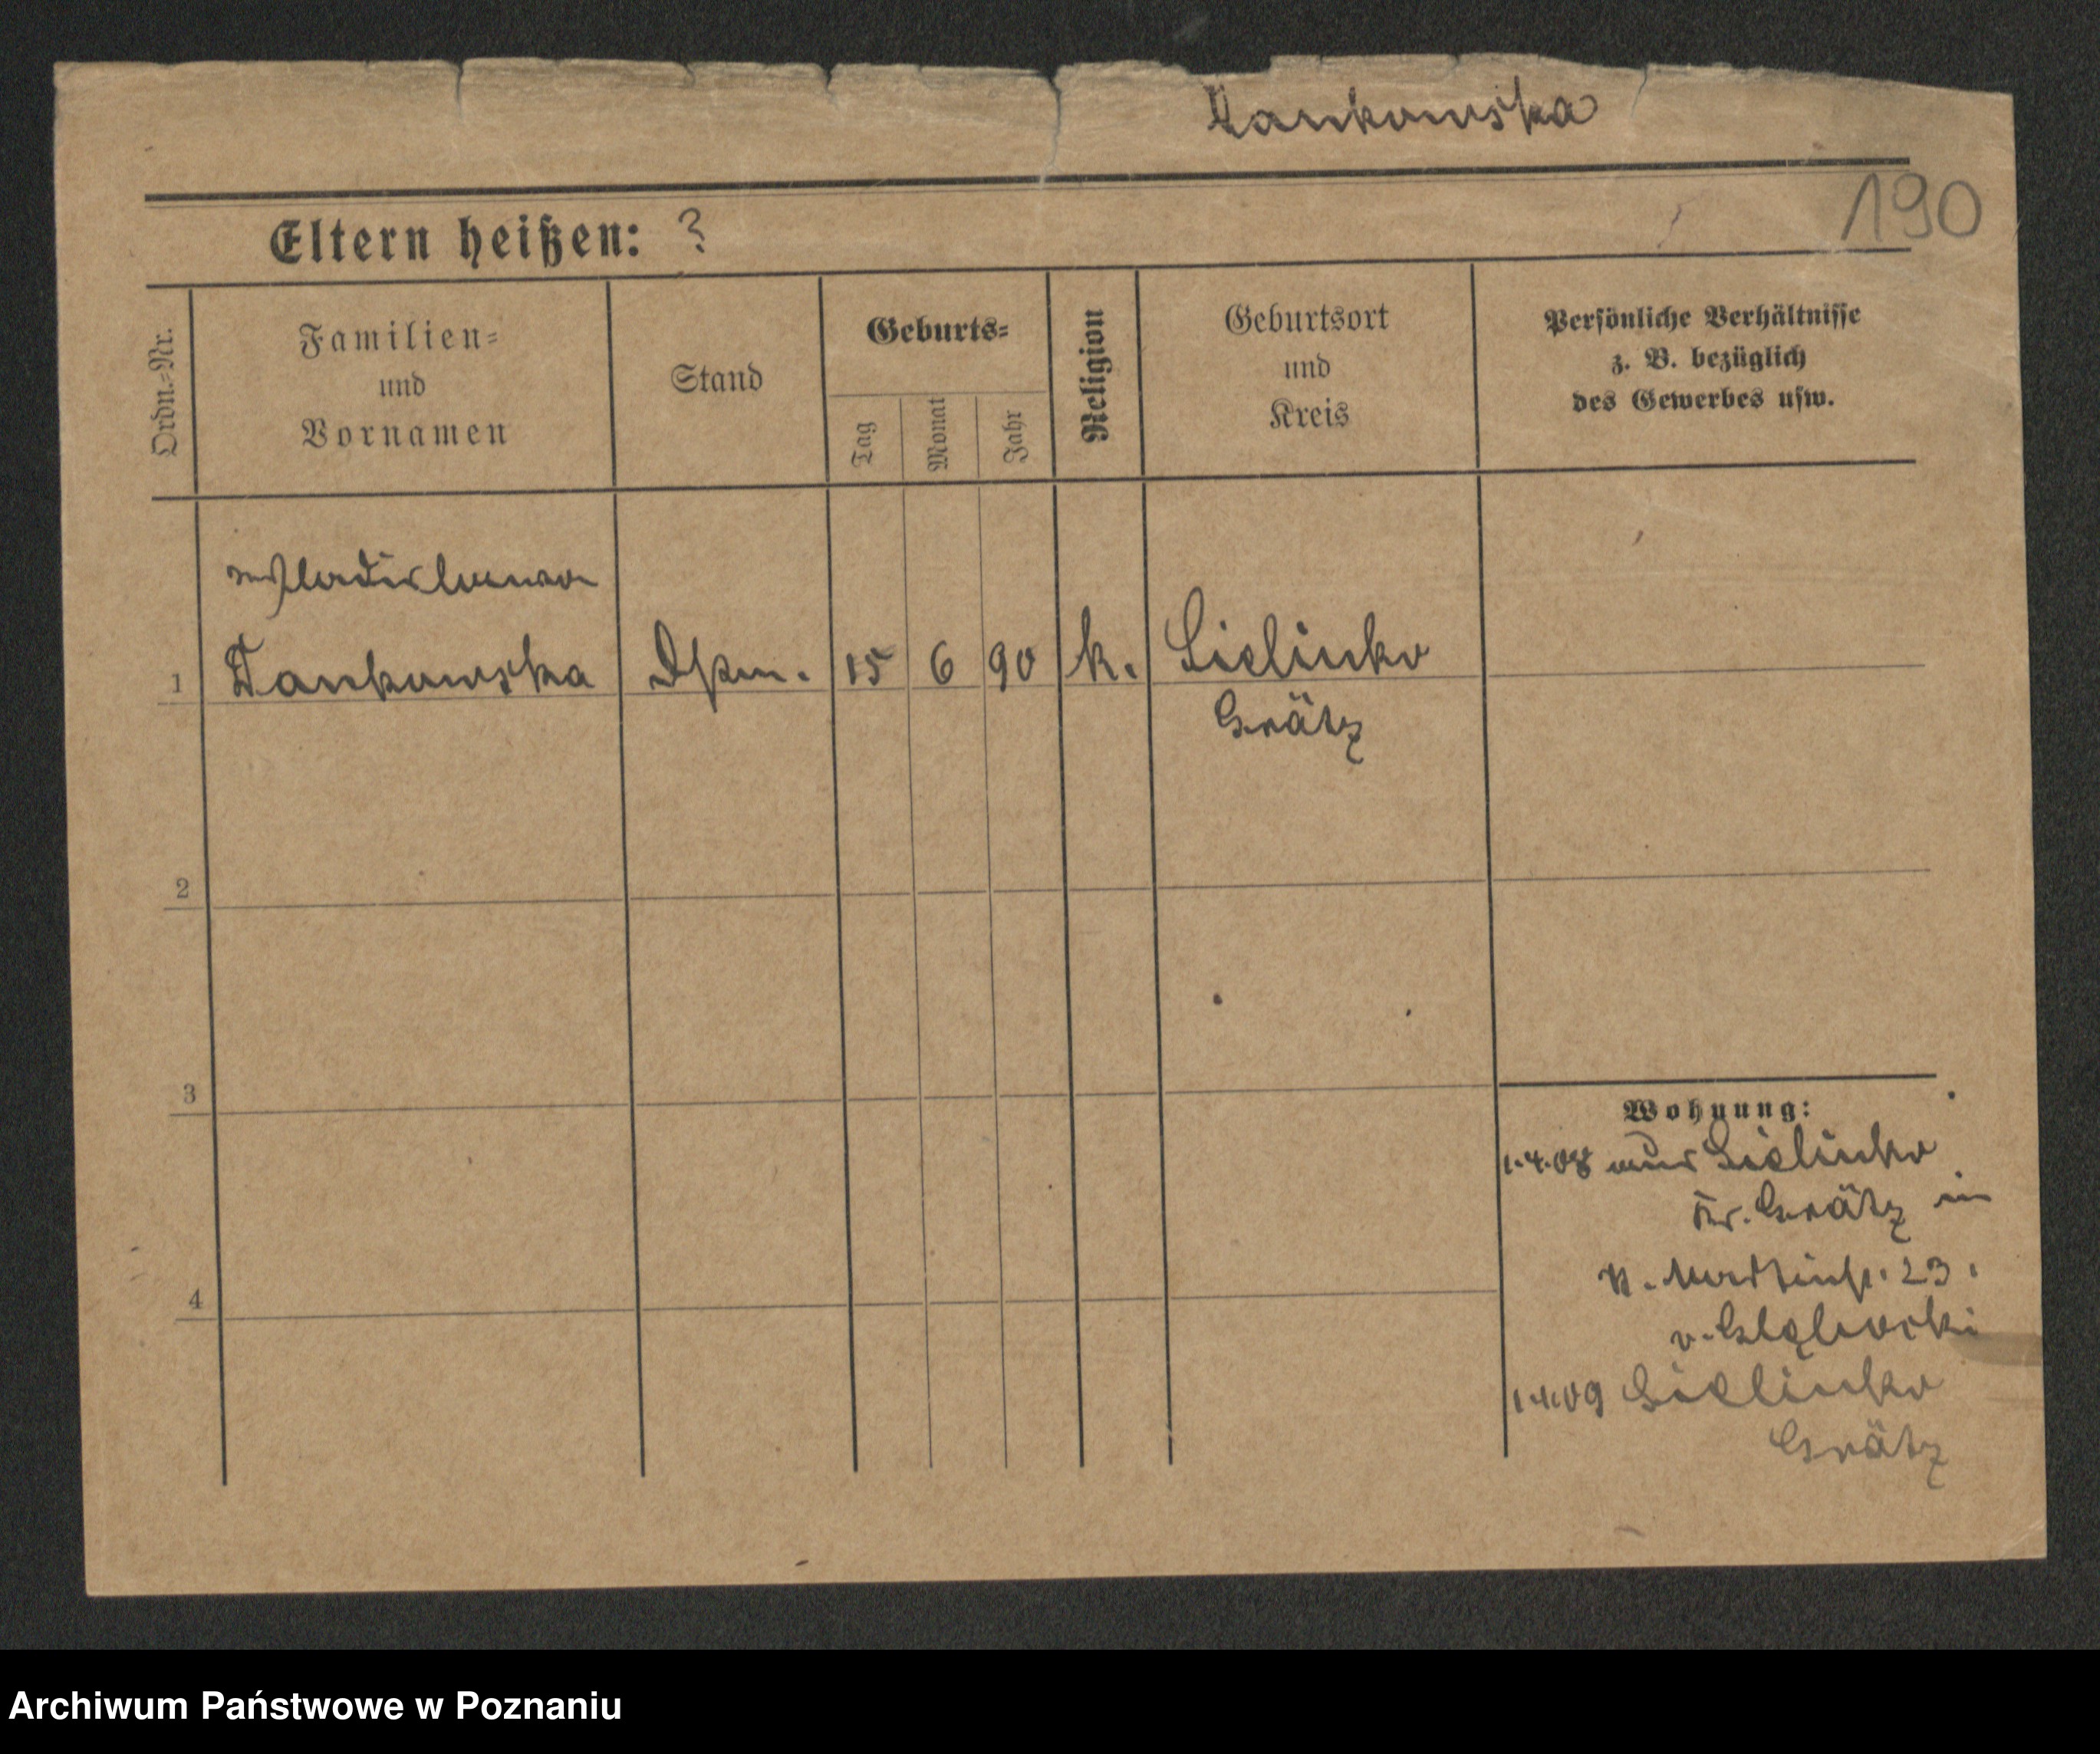 Tankowska
190
Eltern heißen: ?
Ordn.=Nr.
Familien=
und
Vornamen
Stand
Geburts=
Tag
Monat
Jahr
Religion
Geburtsort
und
Kreis
Persönliche Verhältnisse
z. B. bezüglich
des Gewerbes usw.
Wladislawa
1 Tankowska 15 6 90 k. Sielinko
Grätz
2
3
4
Wohnung:
1.4.08 aus Sielinko
Kr. Grätz in
23
v.
1.4.09 Sielinko
Grätz
Archiwum Państwowe w Poznaniu